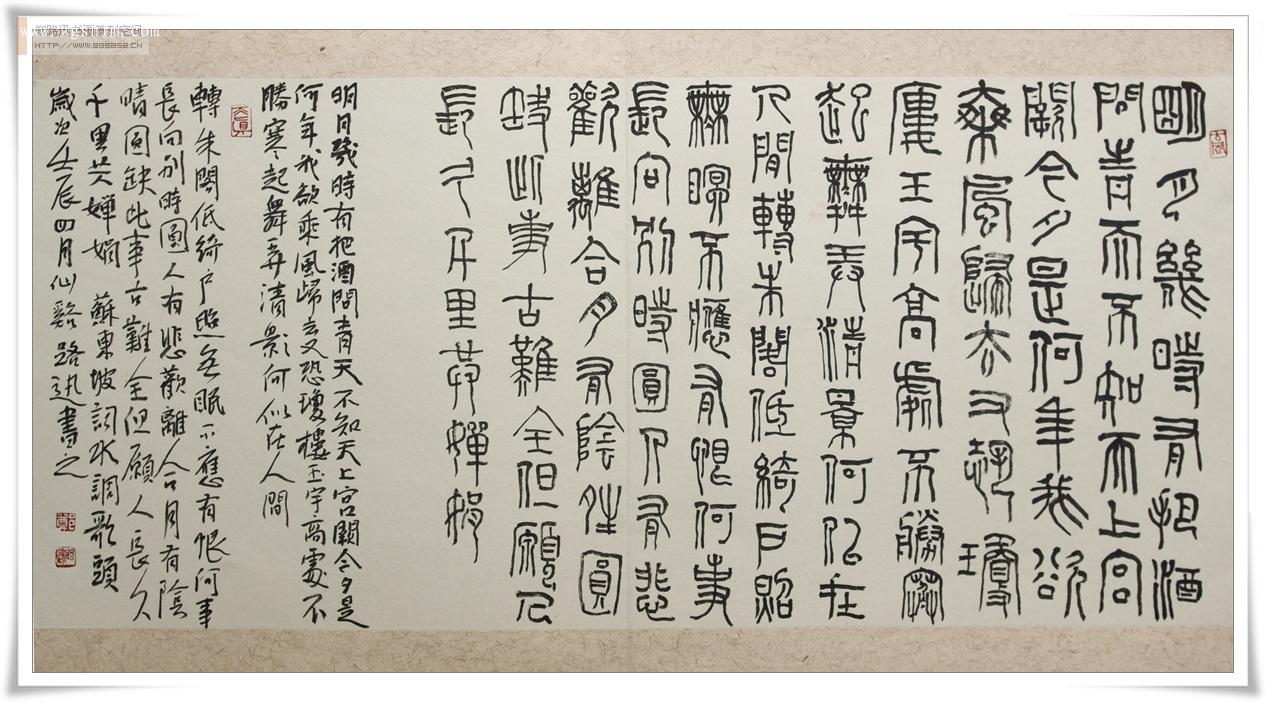 HTTP://WWW.999252.CN
明月幾時有把酒
問青天不知天上宮
闕今夕是何年我欲
乘風歸去又恐瓊
廔玉宇高處不勝寒
起舞弄清景何似在
人間轉朱閣低綺戶照
無瞑不應有恨何事
長向別時圓人有悲
歡離合月有陰晴圓
缺此事古難全但願人
長久千里共嬋娟
明月幾時有把酒問青天不知天上宮闕今夕是
何年我欲乘風歸去又恐瓊樓玉宇高處不
勝寒起舞弄清影何似在人間
轉朱閣低綺戶照無眠不應有恨何事
長向別時圓人有悲歡離合月有陰
晴圓缺此事古難全但願人長久
千里共嬋娟 蘇東坡詞水調歌頭
歲次壬辰四月仙谿路迅書之